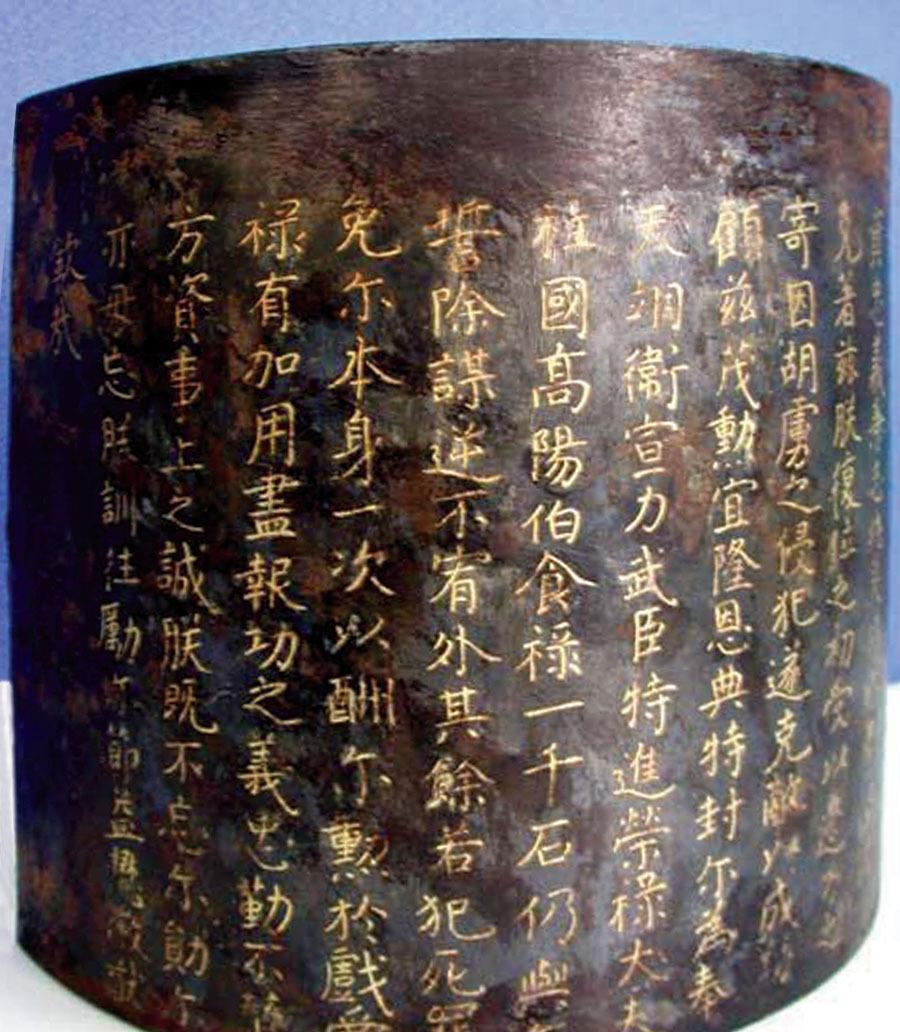 者茲朕復位之初受以邊方之
寄因胡虜之侵犯遂克敵以成功
顧兹茂勳宜隆恩典特封尔為奉
天翊衛宣力武臣特進榮禄大夫
柱國高陽伯食禄一千石仍與
誓除謀逆不宥外其餘若犯死罪
免尔本身一次以酬尔勲於戲爵
禄有加用盡報功之義忠勤不替
方資事上之誠朕既不忘尔勛尔
亦毋忘朕訓往勵尔節益懋厥猷
欽哉